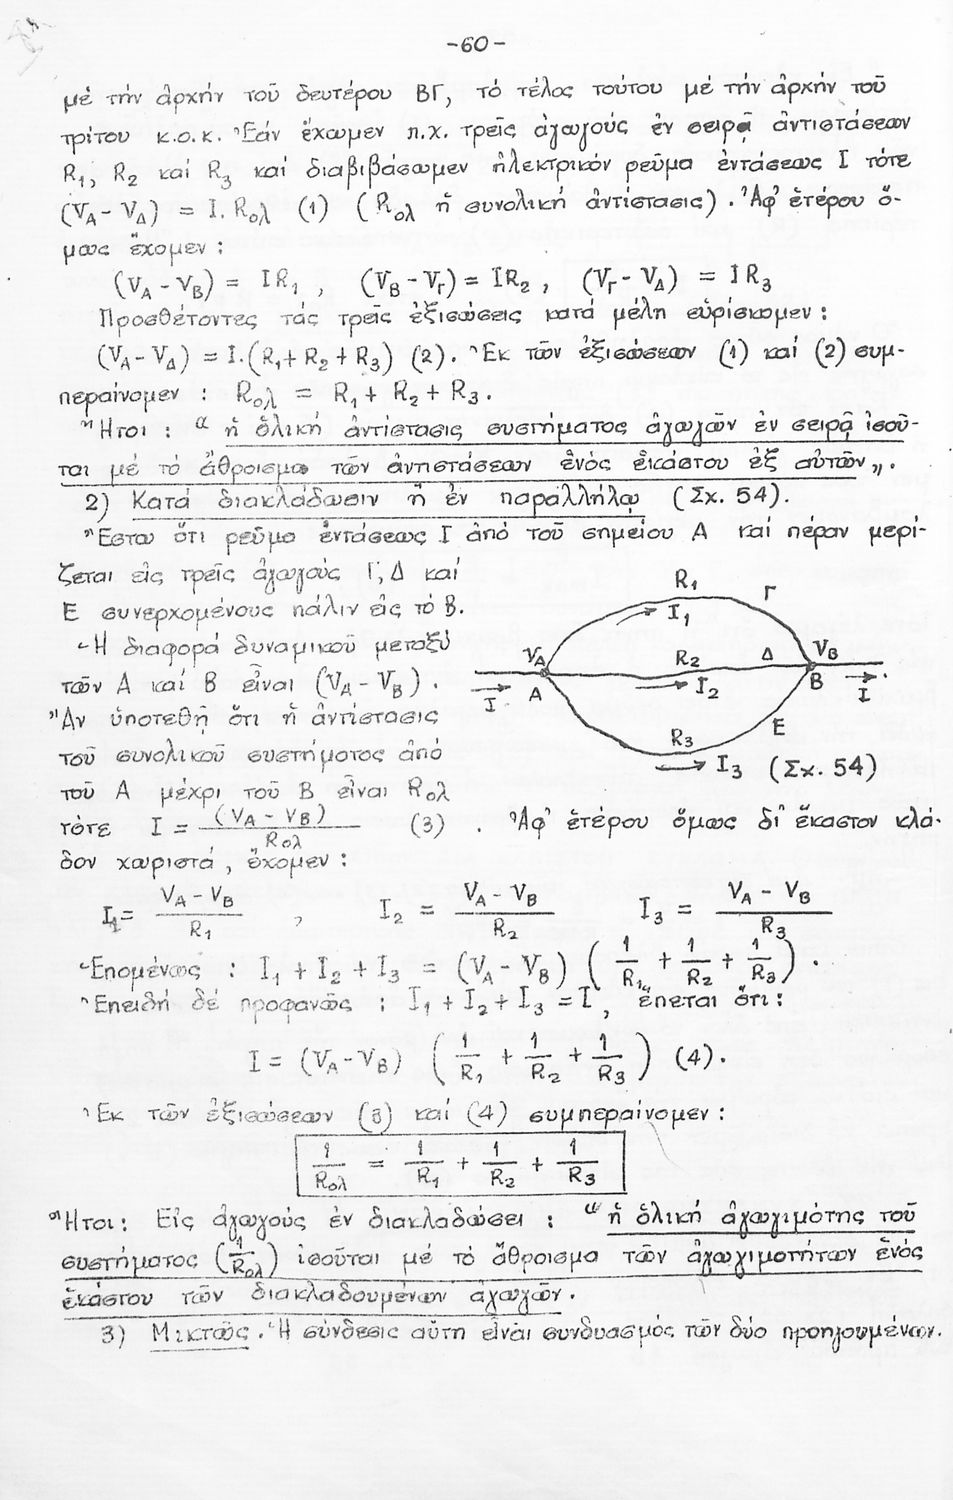 -60-
μέ τήν ἀρχήν τοῦ δευτέρου ΒΓ, τό τέλος τούτου μέ τήν ἀρχήν τοῦ
τρίτου κ.ο.κ. Ἐάν ἔχωμεν π.χ. τρεῖς ἀγωγούς ἐν σειρᾷ ἀντιστάσεων
R₁, R₂ καί R₃ καί διαβιβάσωμεν ἠλεκτρικόν ρεῦμα ἐντάσεως I τότε
(V_A - V_Δ) = I. R_ολ (1) ( R_ολ ἡ συνολική ἀντίστασις). Ἀφ' ἑτέρου ὅ-
μως ἔχομεν :
(V_A - V_B) = IR₁ , (V_B - V_Γ) = IR₂ , (V_Γ - V_Δ) = IR₃
Προσθέτοντες τάς τρεῖς ἐξισώσεις κατά μέλη εὑρίσκομεν :
(V_A - V_Δ) = I.(R₁ + R₂ + R₃) (2). Ἐκ τῶν ἐξισώσεων (1) καί (2) συμ-
περαίνομεν : R_ολ = R₁ + R₂ + R₃.
Ἤτοι : " ἡ ὁλική ἀντίστασις συστήματος ἀγωγῶν ἐν σειρᾷ ἰσοῦ-
ται μέ τό ἄθροισμα τῶν ἀντιστάσεων ἑνός ἑκάστου ἐξ αὐτῶν".
2) Κατά διακλάδωσιν ἤ ἐν παραλλήλῳ (Σχ. 54).
Ἔστω ὅτι ρεῦμα ἐντάσεως I ἀπό τοῦ σημείου A καί πέραν μερί-
ζεται εἰς τρεῖς ἀγωγούς Γ, Δ καί
E συνερχομένους πάλιν εἰς τό B.
Ἡ διαφορά δυναμικοῦ μεταξύ
τῶν A καί B εἶναι (V_A - V_B).
Ἄν ὑποτεθῇ ὅτι ἡ ἀντίστασις
τοῦ συνολικοῦ συστήματος ἀπό
τοῦ A μέχρι τοῦ B εἶναι R_ολ
R₁ Γ
I₁
V_A R₂ Δ V_B
I A I₂ B I
R₃ E
I₃ (Σχ. 54)
τότε I = (V_A - V_B) / R_ολ (3) . Ἀφ' ἑτέρου ὅμως δι' ἕκαστον κλά-
δον χωριστά, ἔχομεν :
I₁ = (V_A - V_B) / R₁ , I₂ = (V_A - V_B) / R₂ I₃ = (V_A - V_B) / R₃
Ἑπομένως : I₁ + I₂ + I₃ = (V_A - V_B) ( 1/R₁ + 1/R₂ + 1/R₃ ) .
Ἐπειδή δέ προφανῶς : I₁ + I₂ + I₃ = I , ἕπεται ὅτι :
I = (V_A - V_B) ( 1/R₁ + 1/R₂ + 1/R₃ ) (4).
Ἐκ τῶν ἐξισώσεων (3) καί (4) συμπεραίνομεν :
1/R_ολ = 1/R₁ + 1/R₂ + 1/R₃
Ἤτοι : Εἰς ἀγωγούς ἐν διακλαδώσει : " ἡ ὁλική ἀγωγιμότης τοῦ
συστήματος (1/R_ολ) ἰσοῦται μέ τό ἄθροισμα τῶν ἀγωγιμοτήτων ἑνός
ἑκάστου τῶν διακλαδουμένων ἀγωγῶν.
3) Μικτῶς. Ἡ σύνδεσις αὕτη εἶναι συνδυασμός τῶν δύο προηγουμένων.